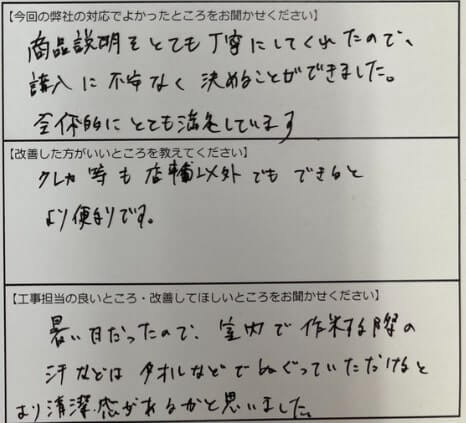 【今回の弊社の対応でよかったところをお聞かせください】
商品説明もとても丁寧にしてくれたので、
購入に不安なく決めることができました。
全体的にとても満足しています
【改善した方がいいところを教えてください】
クレカ等も店舗以外でもできると
より便利です。
【工事担当の良いところ・改善してほしいところをお聞かせください】
暑い日だったので、室内で作業する際の
汗などはタオルなどでぬぐっていただけると
より清潔感があるかと思いました。